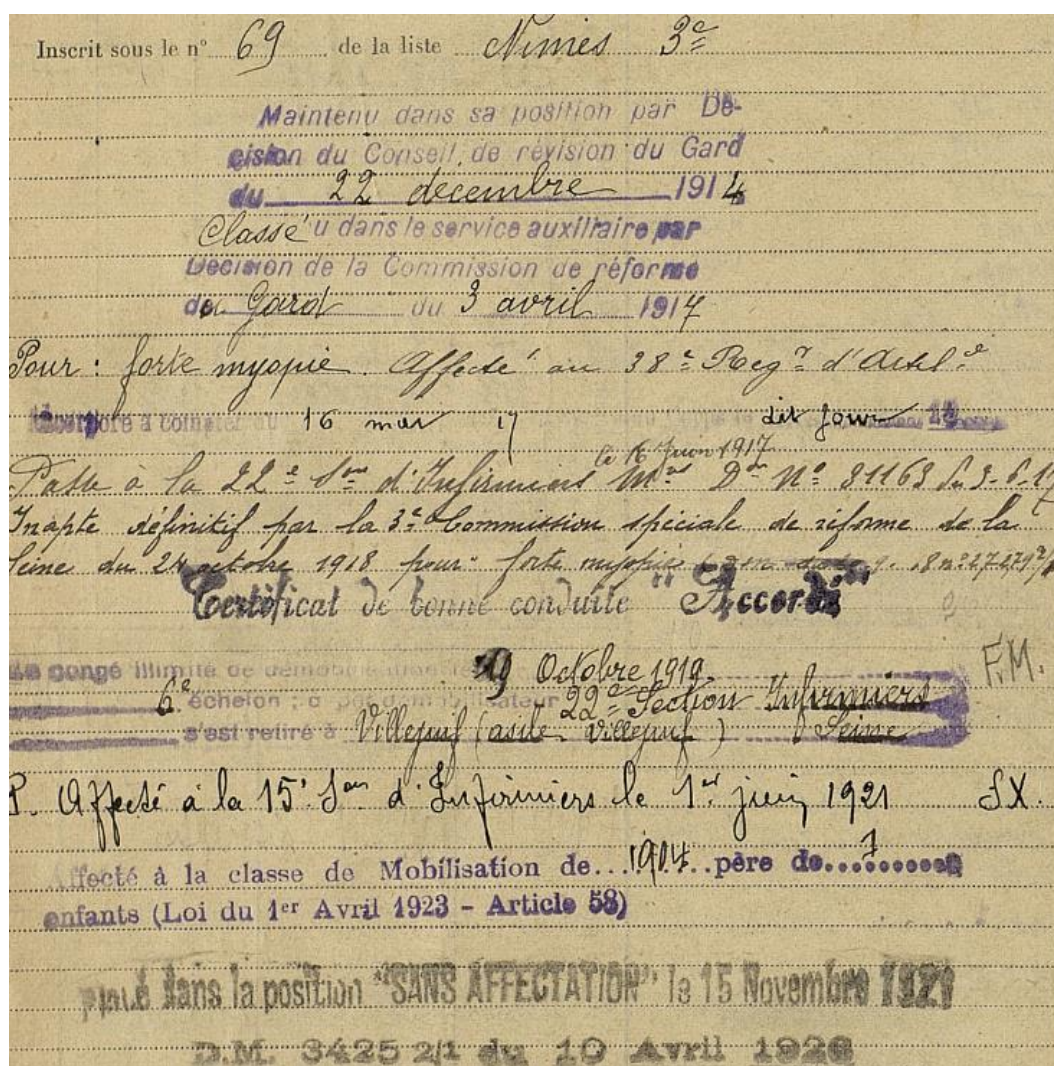 Inscrit sous le n° 69 de la liste Nimes 3e
Maintenu dans sa position par Dé-
cision du Conseil de révision du Gard
du 22 décembre 1914
Classé u dans le service auxiliaire par
Décision de la Commission de réforme
du Gard du 3 avril 1917
Pour : forte myopie. Affecté au 38e Regt d'Artelie
Incorporé à compter du 16 mai 17 dit jour
le 16 Juin 1917
Passe à la 22e Son d'Infirmiers Mres Don No 31163 du 3-6-17
Inapte définitif par la 3e Commission spéciale de réforme de la
Seine du 24 octobre 1918 pour forte myopie
Certificat de bonne conduite "Accordé"
19 Octobre 1919 F.M.
6e échelon 22e Section Infirmiers
s'est retiré à Villejuif (asile Villejuif) Seine
P. Affecté à la 15e Son d'Infirmiers le 1er juin 1921 SX.
Affecté à la classe de Mobilisation de...1904..père de..7
enfants (Loi du 1er Avril 1923 - Article 58)
Placé dans la position "SANS AFFECTATION" le 15 Novembre
D.M. 3425 2/1 du 10 Avril 1926